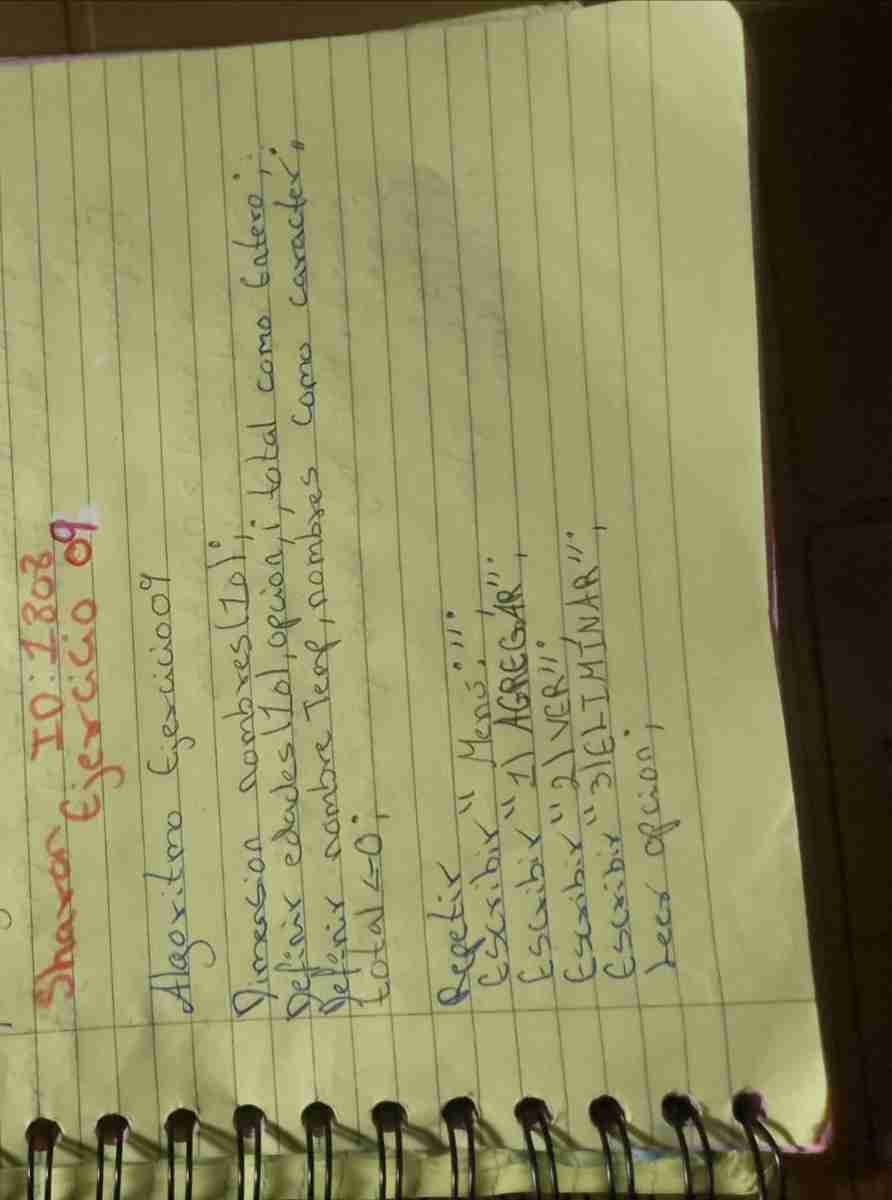 Sharon ID:1808
Ejercicio 09
Algoritmo Ejercicio09
Dimension nombres(10);
Definir edades(10),opcion,i,total como Entero;
Definir nombre Temp,nombres como caracter;
total<-0;
Repetir
Escribir "Menú:";
Escribir "1) AGREGAR";
Escribir "2) VER";
Escribir "3)ELIMINAR";
Leer opcion;